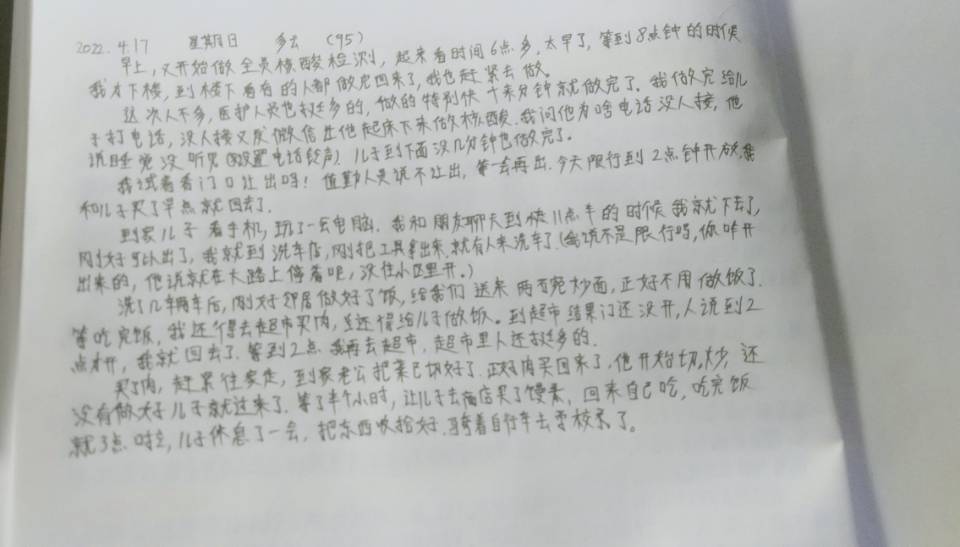 2022.4.17 星期日 多云 (95)
早上,又开始做全员核酸检测,起来看时间6点多,太早了,等到8点钟的时候
我才下楼,到楼下看有的人都做完回来了,我也赶紧去做。
这次人不多,医护人员也挺多的,做的特别快十来分钟就做完了。我做完给儿
子打电话,没人接又发微信让他起床下来做核酸.我问他为啥电话没人接,他
说睡觉没听见(没设置电话铃声)儿子到下面没几分钟也做完了。
我试着看看门口让出吗!值勤人员说不让出,等一会再出.今天限行到2点钟开放.我
和儿子买了早点就回去了.
到家儿子看手机,玩了一会电脑.我和朋友聊天到快11点半的时候我就下去了,
刚好可以出了,我就到洗车店,刚把工具拿出来,就有人来洗车了.(我说不是限行吗,你咋开
出来的,他说就在大路上停着呢,没往小区里开。)
洗了几辆车后,刚好邻居做好了饭,给我们送来两碗炒面,正好不用做饭了.
等吃完饭,我还得去超市买肉,还得给儿子做饭。到超市结果门还没开,人说到2
点才开,我就回去了.等到2点我再去超市,超市里人还挺多的.
买了肉,赶紧往家走,到家老公把菜已切好了.正好肉买回来了,他开始切,炒,还
没有做好儿子就过来了.等了半个小时,让儿子去商店买了馒头,回来自己吃,吃完饭
就3点啦,儿子休息了一会,把东西收拾好.骑着自行车去学校了。